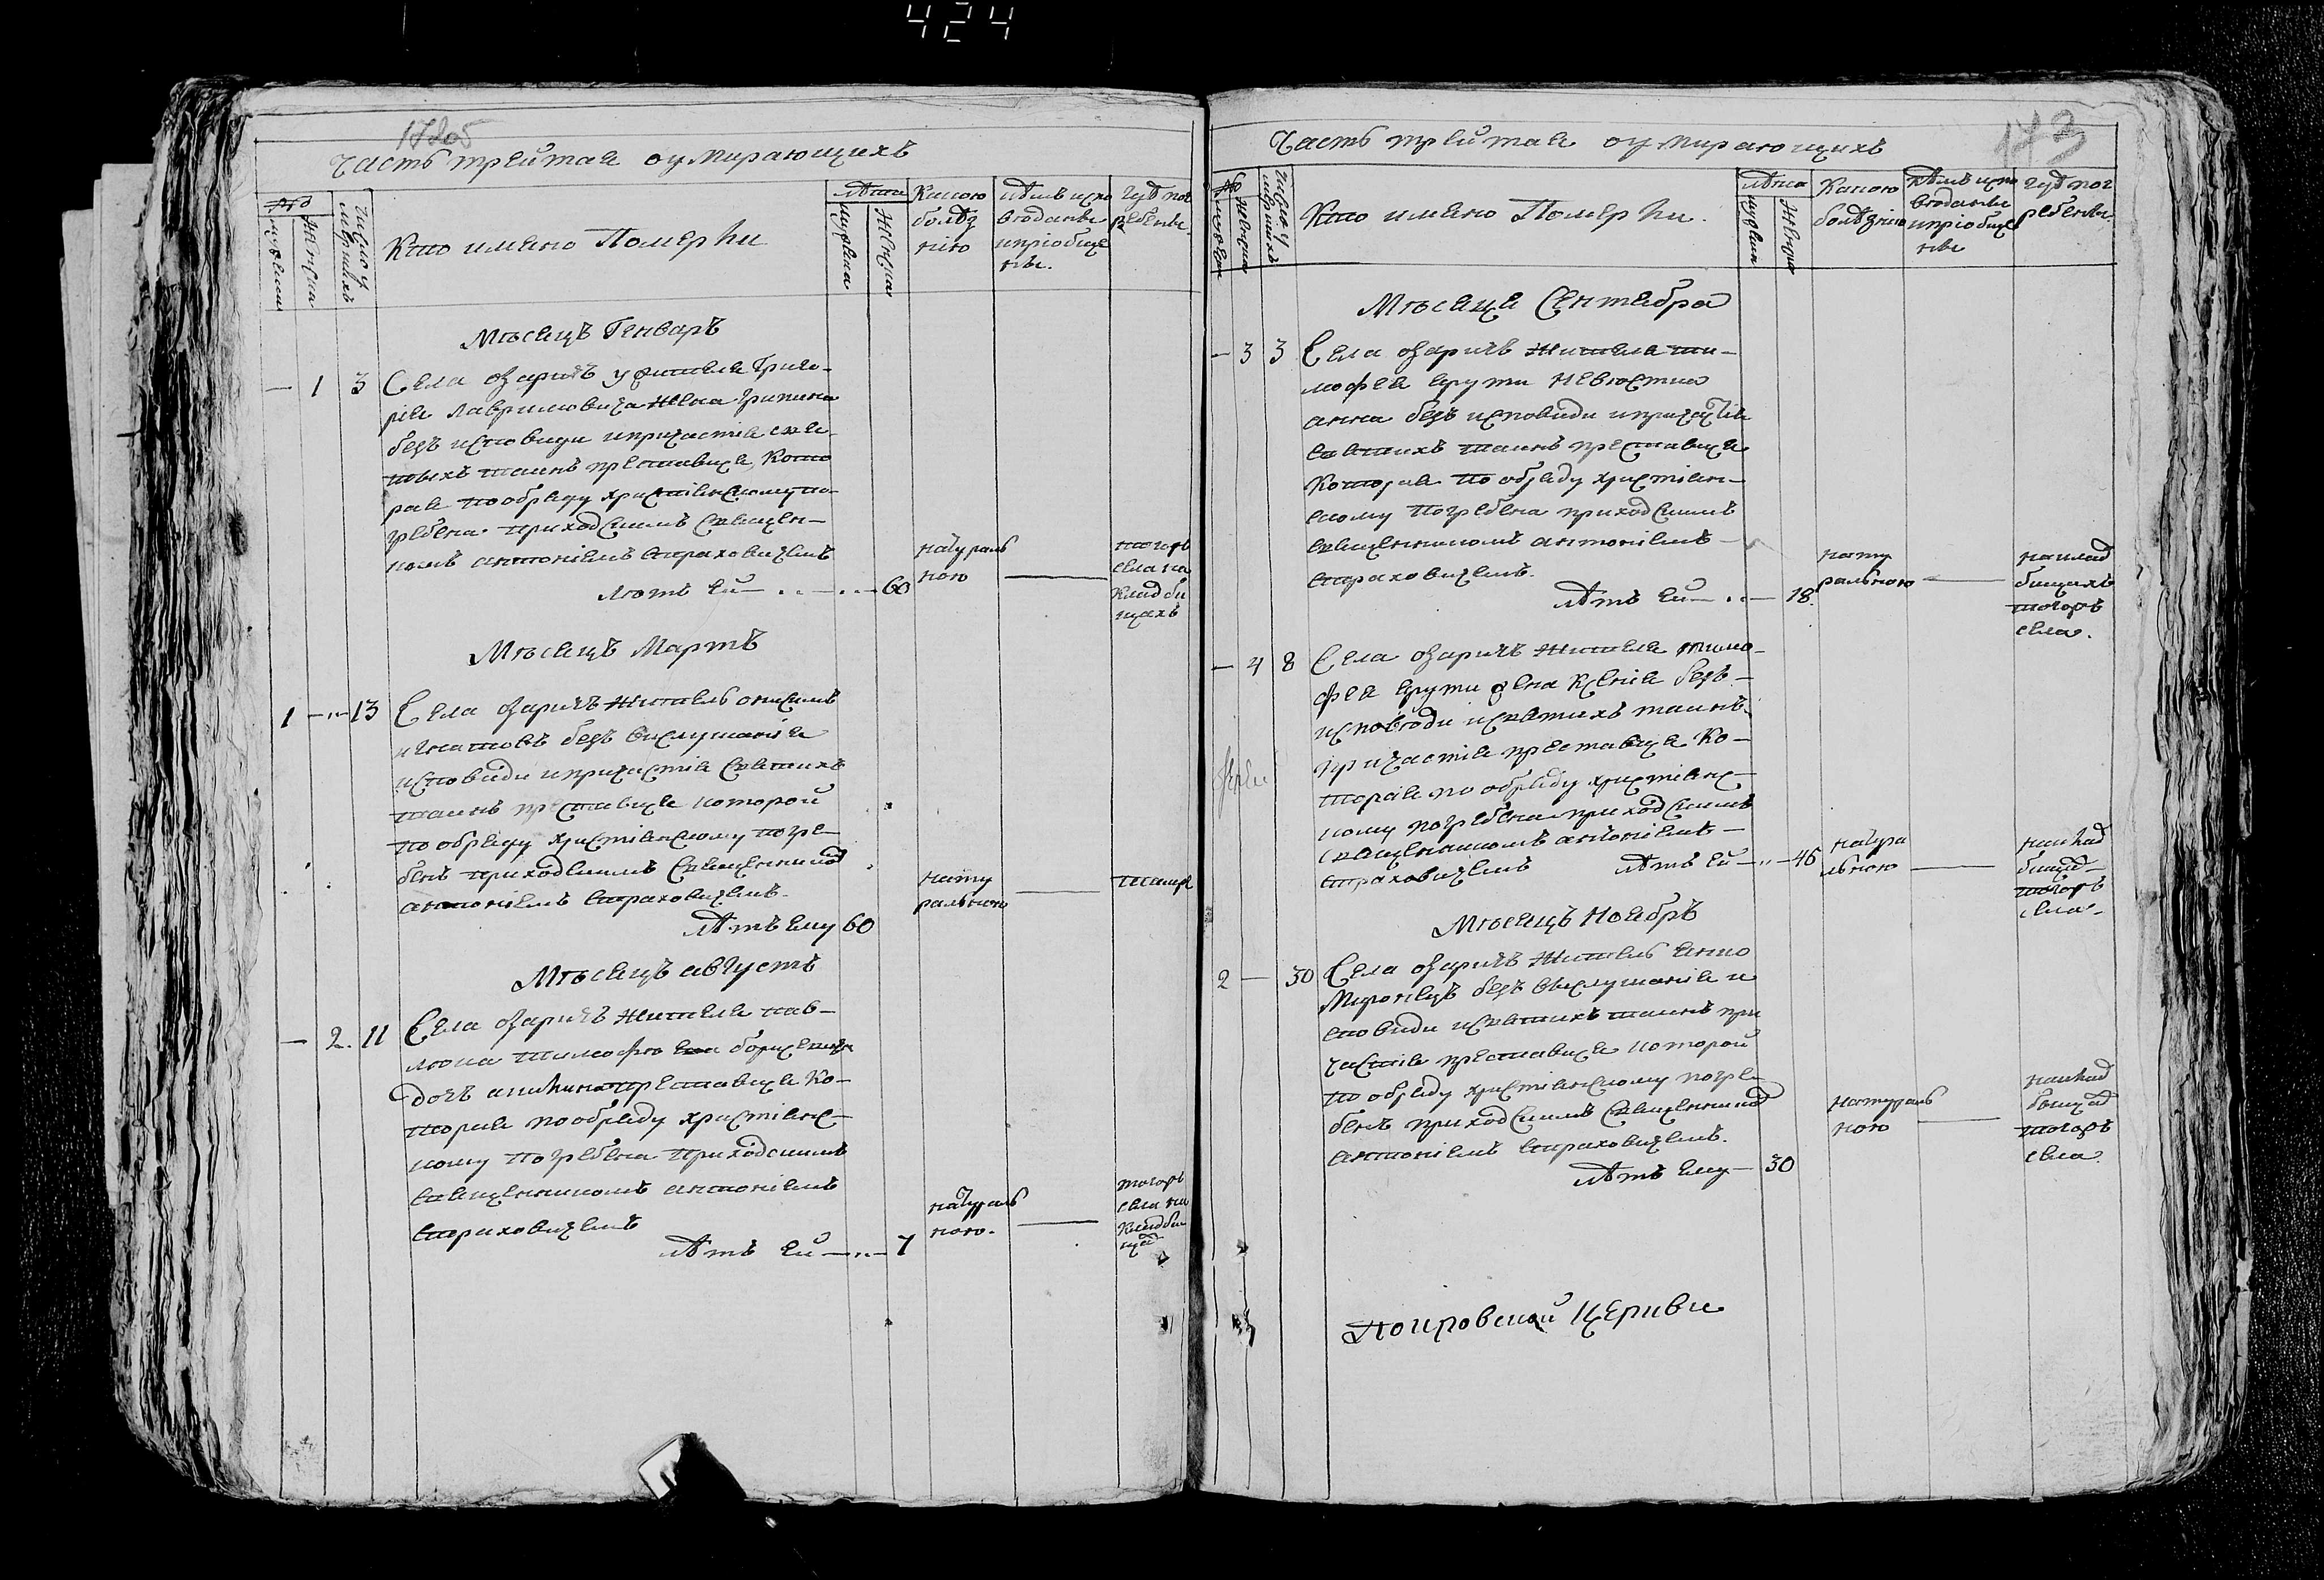 424
172об
Часть третая оумирающихъ
№
мужеска
женска
Число умершихъ
Кто имяно Померли
лѣта
мужеска
женска
Какою
болѣз
нію
кѣмъ испо
вѣданы
и пріобще
ны.
гдѣ пог
ребены.
Мѣсяцъ Генваръ
— 1 3 Села озаричъ жителя Григо-
рія Лавриновича жена
безъ исповиди и причастія свя-
тыхъ таинъ преставися, Кото
рая по обряду христіянскому по-
гребена приходскимъ священ-
комъ антоніемъ Страховичемъ
лѣтъ ей — 60
натураль
ною
тогожъ
села на
кладби
щахъ
Мѣсяцъ Мартъ
1 — 13 Села озаричъ житель онисимъ
игнатовъ безъ вислушанія
исповиди и причастія святихъ
таинъ преставися которой
по обряду христіянскому погре-
бенъ приходскимъ священникомъ
антоніемъ Страховичемъ.
лѣтъ ему 60
нату
ральною
тамже
Мѣсяцъ августъ
— 2. 11 Села озаричъ жителя пав-
дочъ преставися ко-
торая по обряду христіянс-
кому погребена приходскимъ
священникомъ антоніемъ
Страховичемъ
лѣтъ ей — 7
натураль
ною.
тогожъ
села на
кладби
щахъ
173
Часть третая оумирающихъ
№
мужеска
женска
Число умершихъ
Кто имяно Померли.
лѣта
мужеска
женска
Какою
болѣзнію
кѣмъ испо
вѣданы
и пріобще
ны
гдѣ пог
ребены.
Мѣсяця Сентабра
— 3 3 Села озаричъ жителя ти-
мофея невѣстка
анна безъ исповиди и причастія
святихъ таинъ преставися
которая по обряду христіян-
скому погребена приходскимъ
священникомъ антоніемъ —
Страховичемъ.
лѣтъ ей — 18.
нату
ральною
на клад
бищахъ
тогожъ
села.
— 4 8 Села озаричъ жителя тимо-
фея жена ксенія безъ —
исповѣди и святихъ таинъ
причастія преставися ко-
торая по обряду христіянс-
кому погребена приходскимъ
священникомъ антоніемъ —
Страховичемъ лѣтъ ей — 46
натура
льною
на клад
бищахъ
тогожъ
села.
Мѣсяцъ Ноябръ
2 — 30 Села озаричъ житель
безъ вислушанія и
споведи и святихъ таинъ при
частія преставися которой
по обряду христіянскому погре-
бенъ приходскимъ священникомъ
антоніемъ Страховичемъ.
лѣтъ ему — 30
натураль
ною
на клад
бищахъ
тогожъ
села.
Покровской Церкви